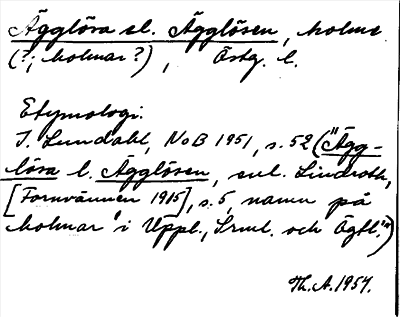 Ägglösa el. Ägglösen, holme
(?; holmar?), Östg. l.
Etymologi:
I. Lundahl, NoB 1951, s. 52 ("Ägg-
lösa l. Ägglösen, enl. Lindroth,
[Fornvännen 1915], s. 5, namn på
holmar i Uppl., Srml. och Ögtl.")
Th. A. 1957.